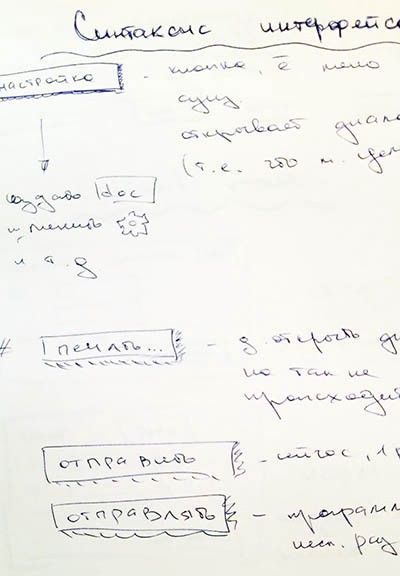 Синтаксис интерфейсо
настройко - кнопка, ё мено
сущ.
открывает диало
(т.е. это м.
создать doc
изменить
и т.д
# печать... - д. открыть ди
но так не
происходит
отправить - сейчас, 1 р
отправлять - программ
неск. раз